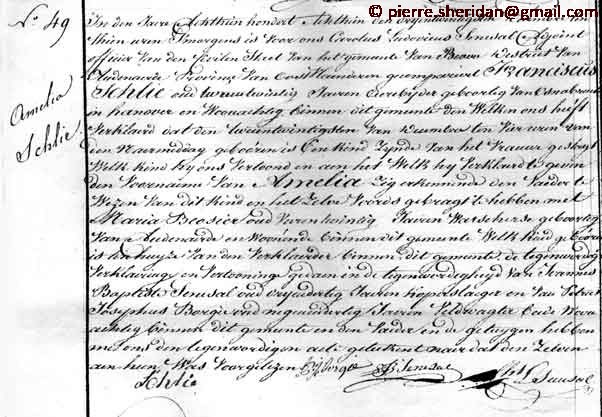 © pierre.sheridan@gmail.com
No. 49
Amelia
Schlie
In den Jaere Achthien hondert Achthien den dryentwintigsten
thien uren Smorgens is voor ons Carolus Ludovicus Adjoint
officier van den Civilen Staet van het gemeente van District van
Audenaerde Provincie van Oostvlaenderen gecompareert Franciscus
Schlie oud tweentwintig Jaeren geboortig van Osnabrug
in hanover en Woonachtig binnen dit gemeente den Welken ons heeft
Verklaerd dat den tweentwintigsten van ten Vier uren van
den Naermiddag geboren is Een kind Zynde van het Vrauwelyk geslagt
Welk kind hy ons Vertoond en aen het Welk hy Verklaerd te geven
den Voornaeme Van Amelia Zig erkennende den Vaeder te
Wezen Van dit kind en het Zelve Voords gebragt t'hebben met
Maria oud Vierentwintig Jaeren geboortig
Van Audenaerde en Woonende binnen dit gemeente Welk kind geboren
is ten huyze Van den Verklaerder binnen dit gemeente de tegenwoordige
Verklaering en Vertooning gedaen in de tegenwoordigheyd Van Joannes
Baptiste oud dryendertig Jaeren koperslaeger en Van
Josephus oud negenendertig Jaeren Veldwagter beide Woon
achtig binnen dit gemeente en den Vaeder en de getuygen hebben
met ons den tegenwoordigen acte geteekent naer dat den Zelven
aen hun Was Voorgelezen
Schlie